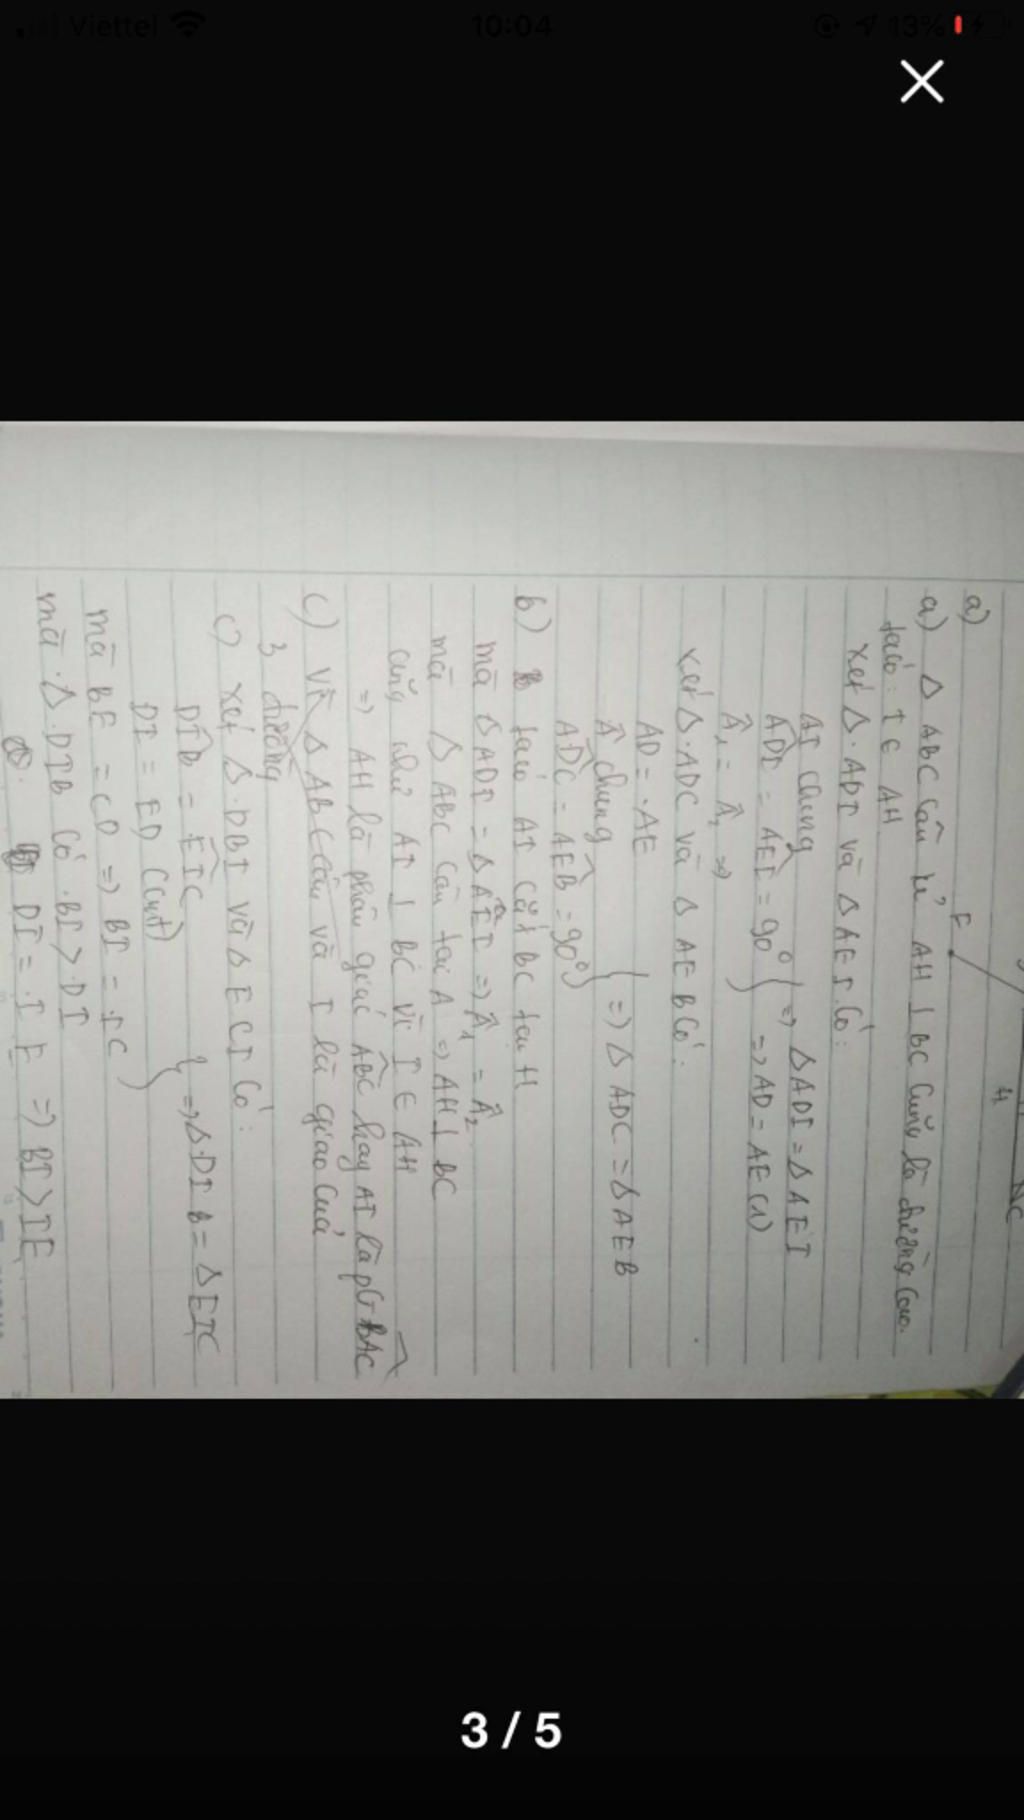 Viettel
10:04
13%
F
H
NC
a)
a) Δ ABC cân kẻ AH ⊥ BC cũng là đường cao.
ta có: I ∈ AH
xét Δ.ADI và Δ AEI có:
AI chung
ADI = AEI = 90° } => Δ ADI = Δ AEI
Â₁ = Â₂ => } => AD = AE (1)
xét Δ.ADC và Δ AEB có:
AD = .AE
Â chung } => Δ ADC = Δ AEB
ADC = AEB = 90°
b) ta có AI cắt BC tại H
mà Δ ADI = Δ AEI => Â₁ = Â₂
mà Δ ABC cân tại A => AH ⊥ BC
cũng như AI ⊥ BC vì I ∈ AH
=> AH là phân giác ABC hay AI là pG BAC
c) Vì Δ ABC cân và I là giao của
3 đường
c) xét Δ.DBI và Δ ECI có:
DIB = EIC
DI = ED (cmt) } => Δ.DIB = Δ EIC
mà BE = CD => BI = .IC
mà .Δ.DIB có .BI > .DI
DI = .I F => BI > IE
3 / 5